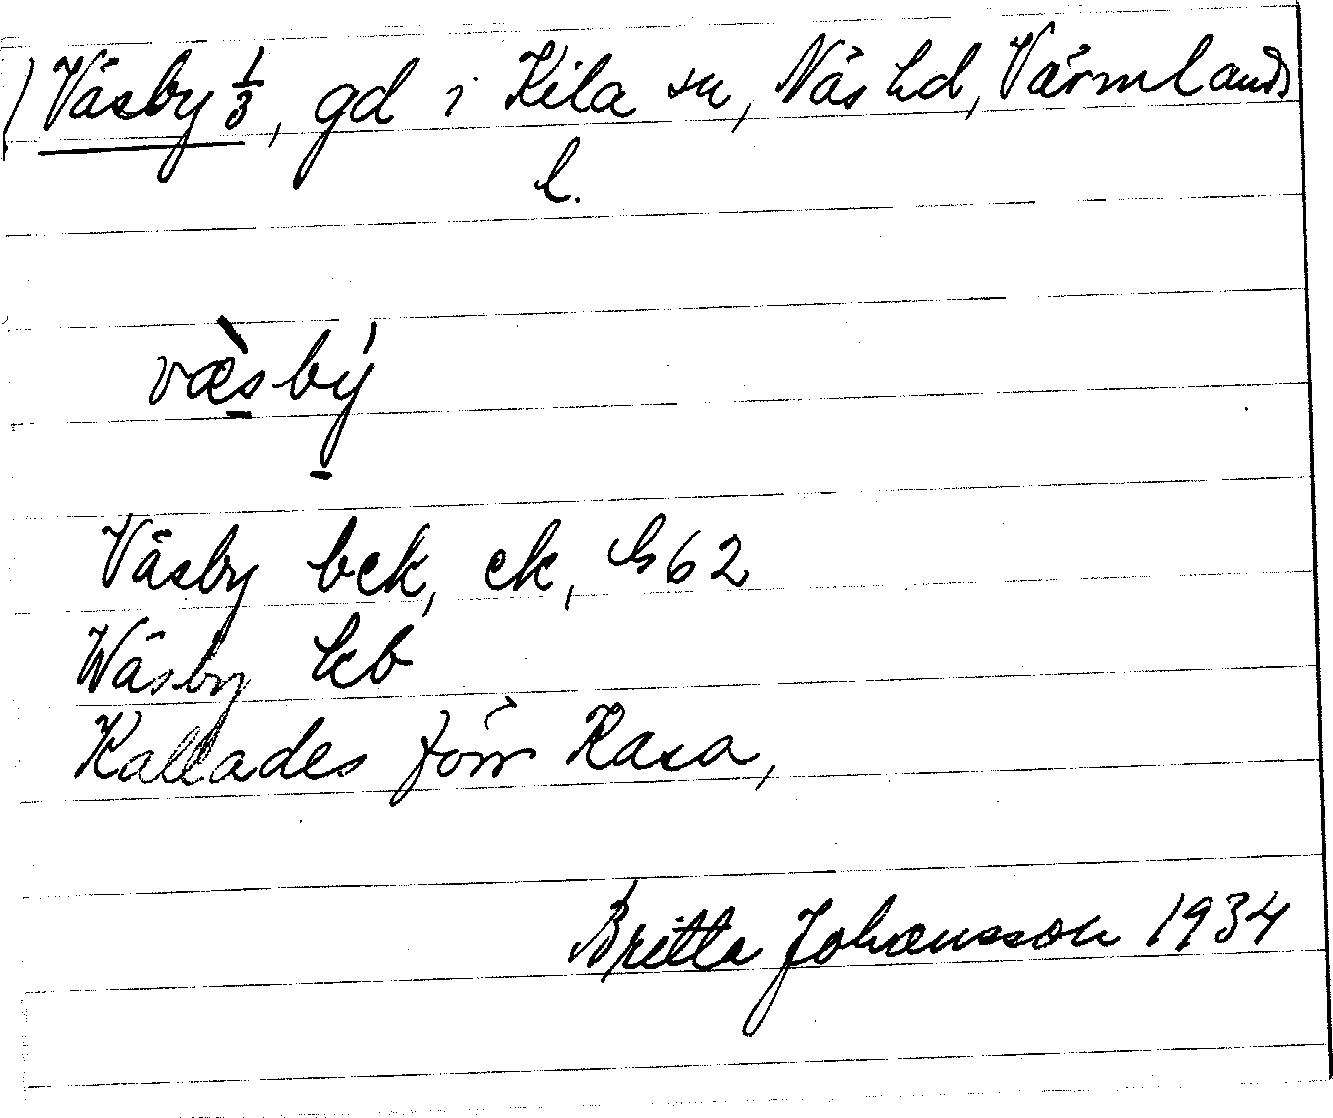 Väsby 1/3, gd i Kila sn, Näs hd, Värmlands
l.
væ̀sbý
Väsby bek, ek, GS 62
Wäsby kb
Kallades förr Kasa,
Britta Johansson 1934